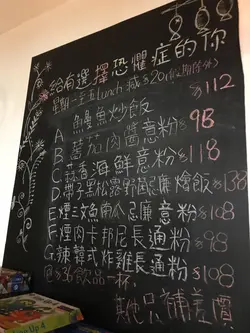 給有選擇恐懼症的你
星期一至五lunch 減$20
A. 鰻魚炒飯 $112
B. 蕃茄肉醬意粉 $98
C. 蒜香海鮮意粉 $118
D. 椰子黑松露野菌忌廉燴飯 $138
E. 煙三文魚南瓜忌廉意粉 $108
F. 煙肉卡邦尼長通粉 $98
G. 辣韓式炸雞長通粉 $108
$36飲品一杯,
其他只補差價!
Up 4